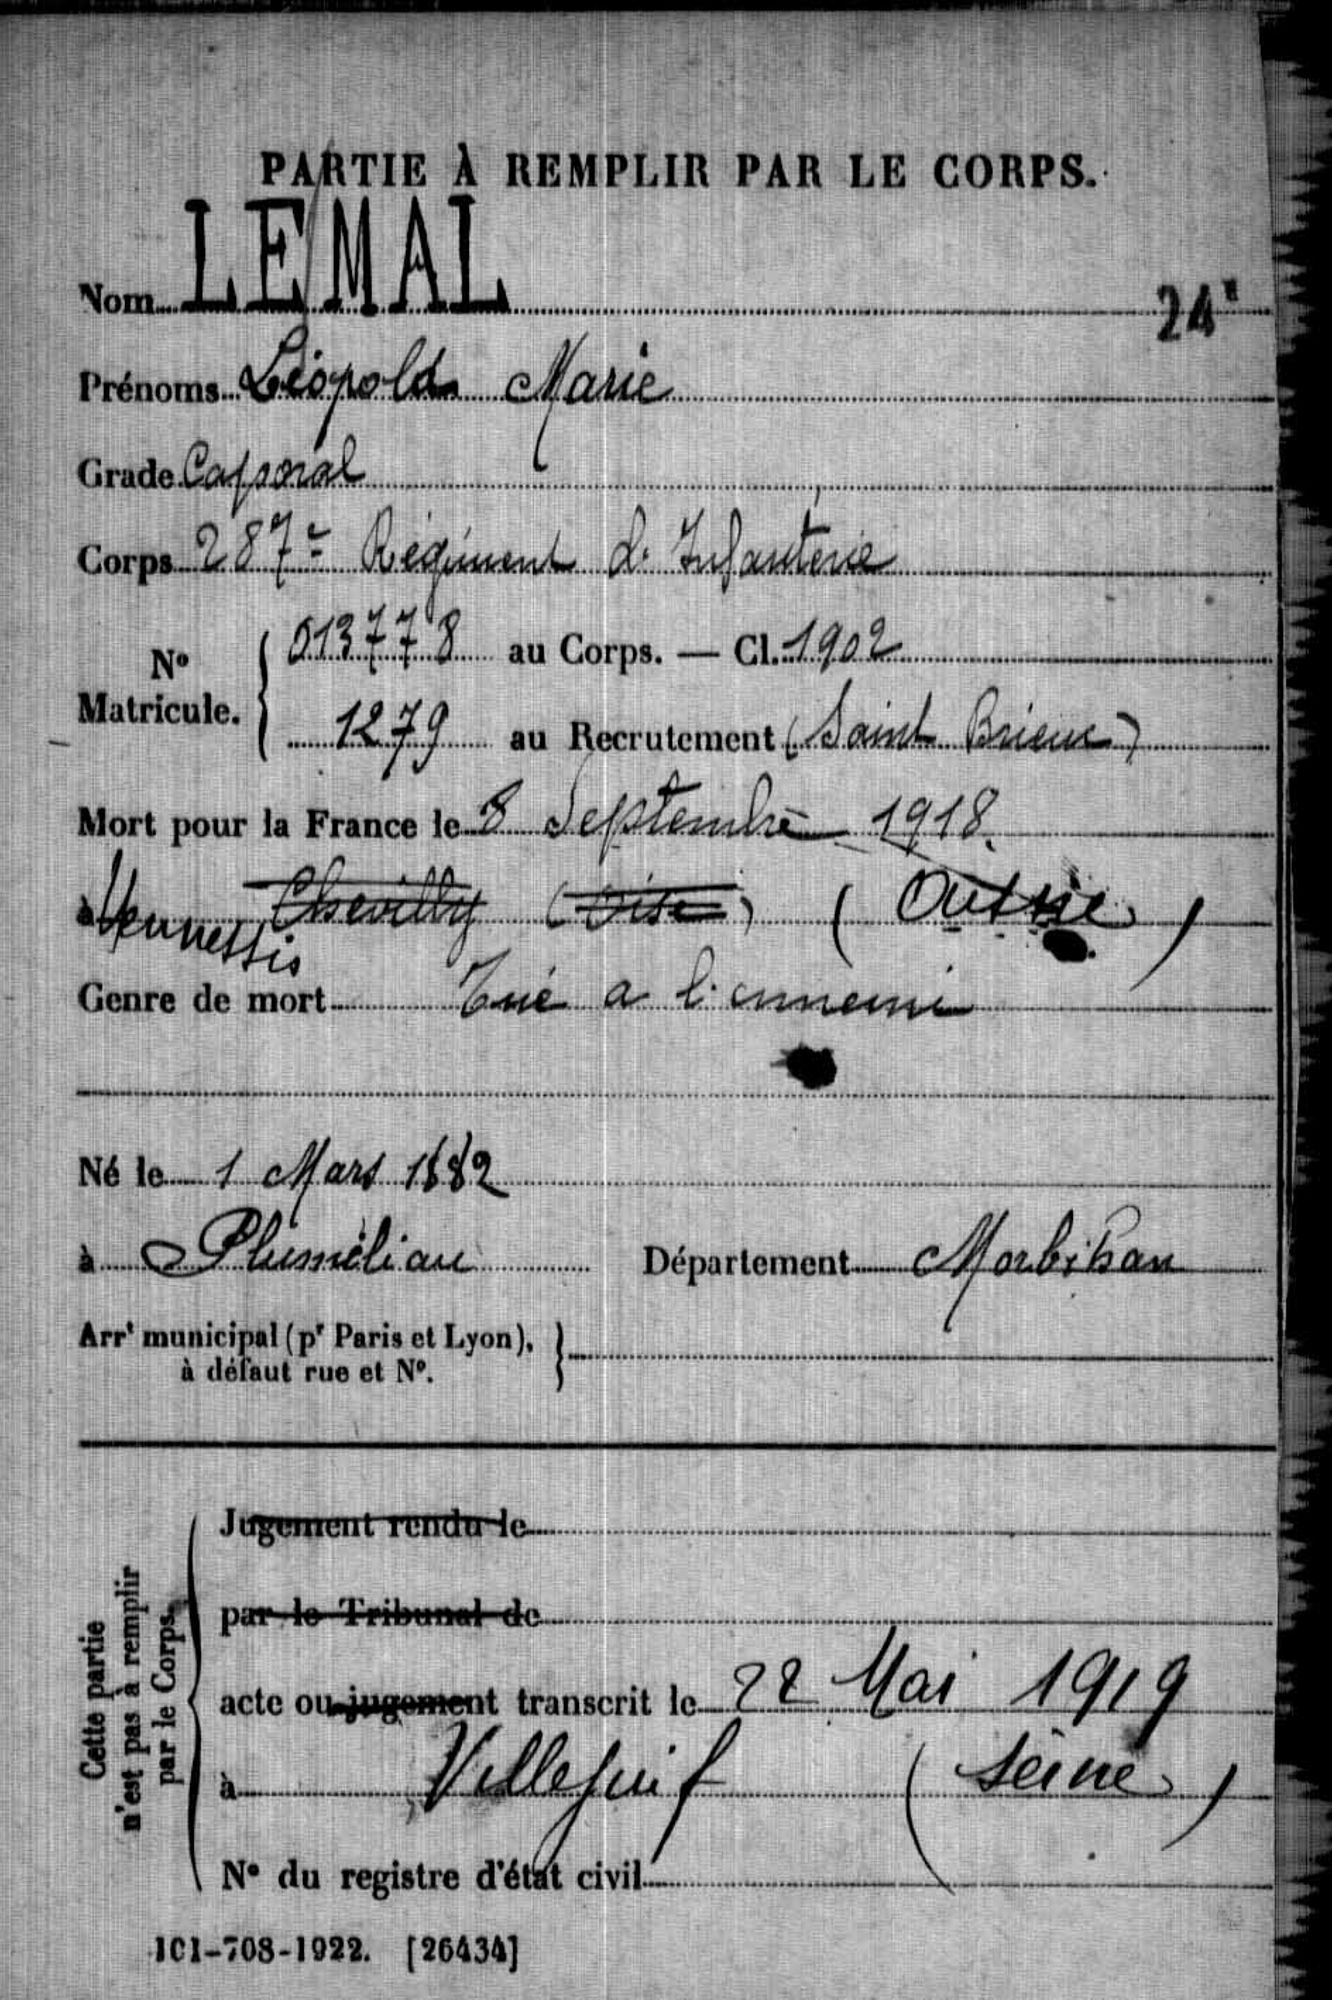 PARTIE À REMPLIR PAR LE CORPS.
Nom LE/MAL
24e
Prénoms Léopold Marie
Grade Caporal
Corps 287e Régiment d'Infanterie
No Matricule. 013778 au Corps. — Cl. 1902
1279 au Recrutement (Saint Brieuc)
Mort pour la France le 8 Septembre 1918.
à Chevilly (Oise) (
Genre de mort Tué a l'ennemi
Né le 1 Mars 1882
à Pluméliau Département Morbihan
Arrt municipal (pr Paris et Lyon),
à défaut rue et No.
Cette partie
n'est pas à remplir
par le Corps.
Jugement rendu le
par le Tribunal de
acte ou jugement transcrit le 22 Mai 1919
à Villejuif (Seine)
No du registre d'état civil
101-708-1922. [26434]